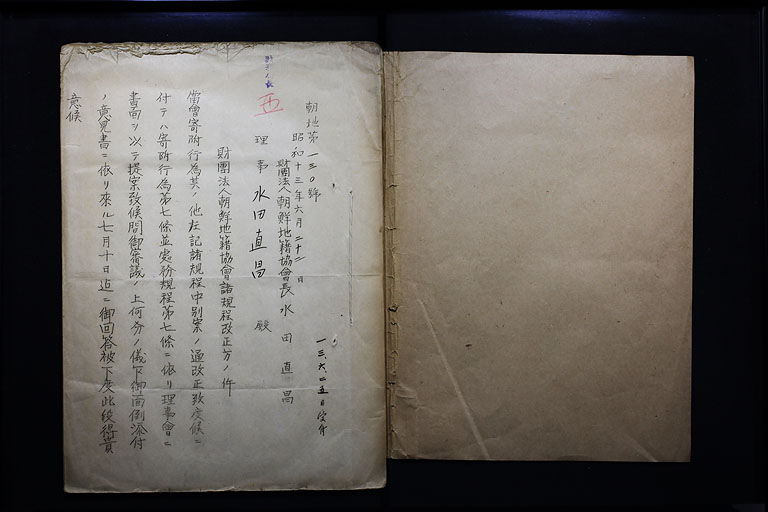 朝地第一三〇號
昭和十三年六月二十二日
財團法人朝鮮地籍協會長水田直昌
理事 水田直昌 殿
一三、六、二五日受付
五
財團法人朝鮮地籍協會諸規程改正方ノ件
當會寄附行為其ノ他左記諸規程中別案ノ通改正致度候ニ
付テハ寄附行為第七條並處務規程第七條ニ依リ理事會ニ
書面ヲ以テ提案致候間御審議ノ上何分ノ儀乍御面倒添付
ノ意見書ニ依リ來ル七月十日迄ニ御回答被下度此段得貴
意候